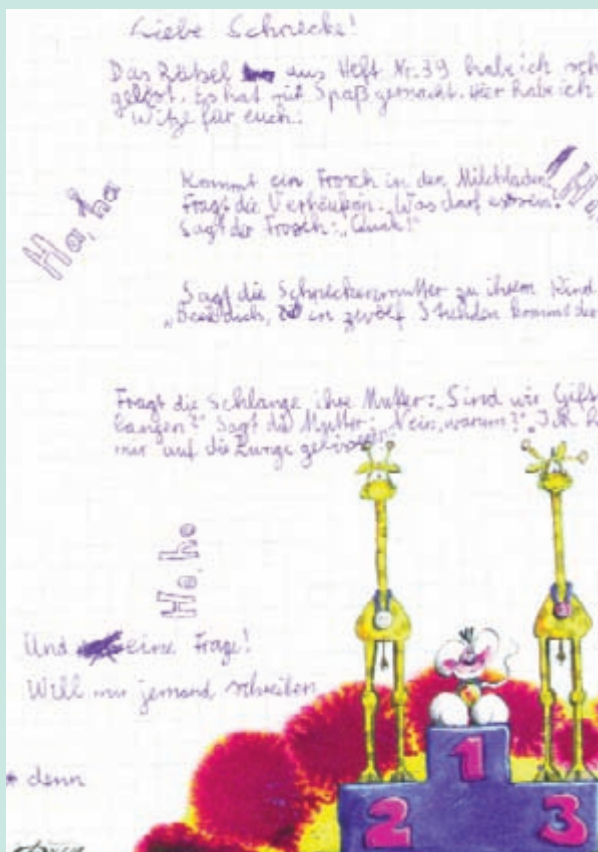 Liebe Schnecke!
Das Rätsel aus Heft Nr. 39 habe ich sch
gelöst. Es hat mir Spaß gemacht. Hier habe ich
Witze für euch:
Ha, ha
Kommt ein Frosch in den Milchladen.
Fragt die Verkäuferin: „Was darf es sein?"
Sagt der Frosch: „Quak!"
Ha,
Sagt die Schneckenmutter zu ihrem Kind
„Beeil dich, in zwölf Stunden kommt der
Fragt die Schlange ihre Mutter: „Sind wir Gifts
langen?" Sagt die Mutter: „Nein, warum?" „Ich h
mir auf die Zunge gebissen
Ho, ho
Und eine Frage!
Will mir jemand schreiben
* denn
1
2
3